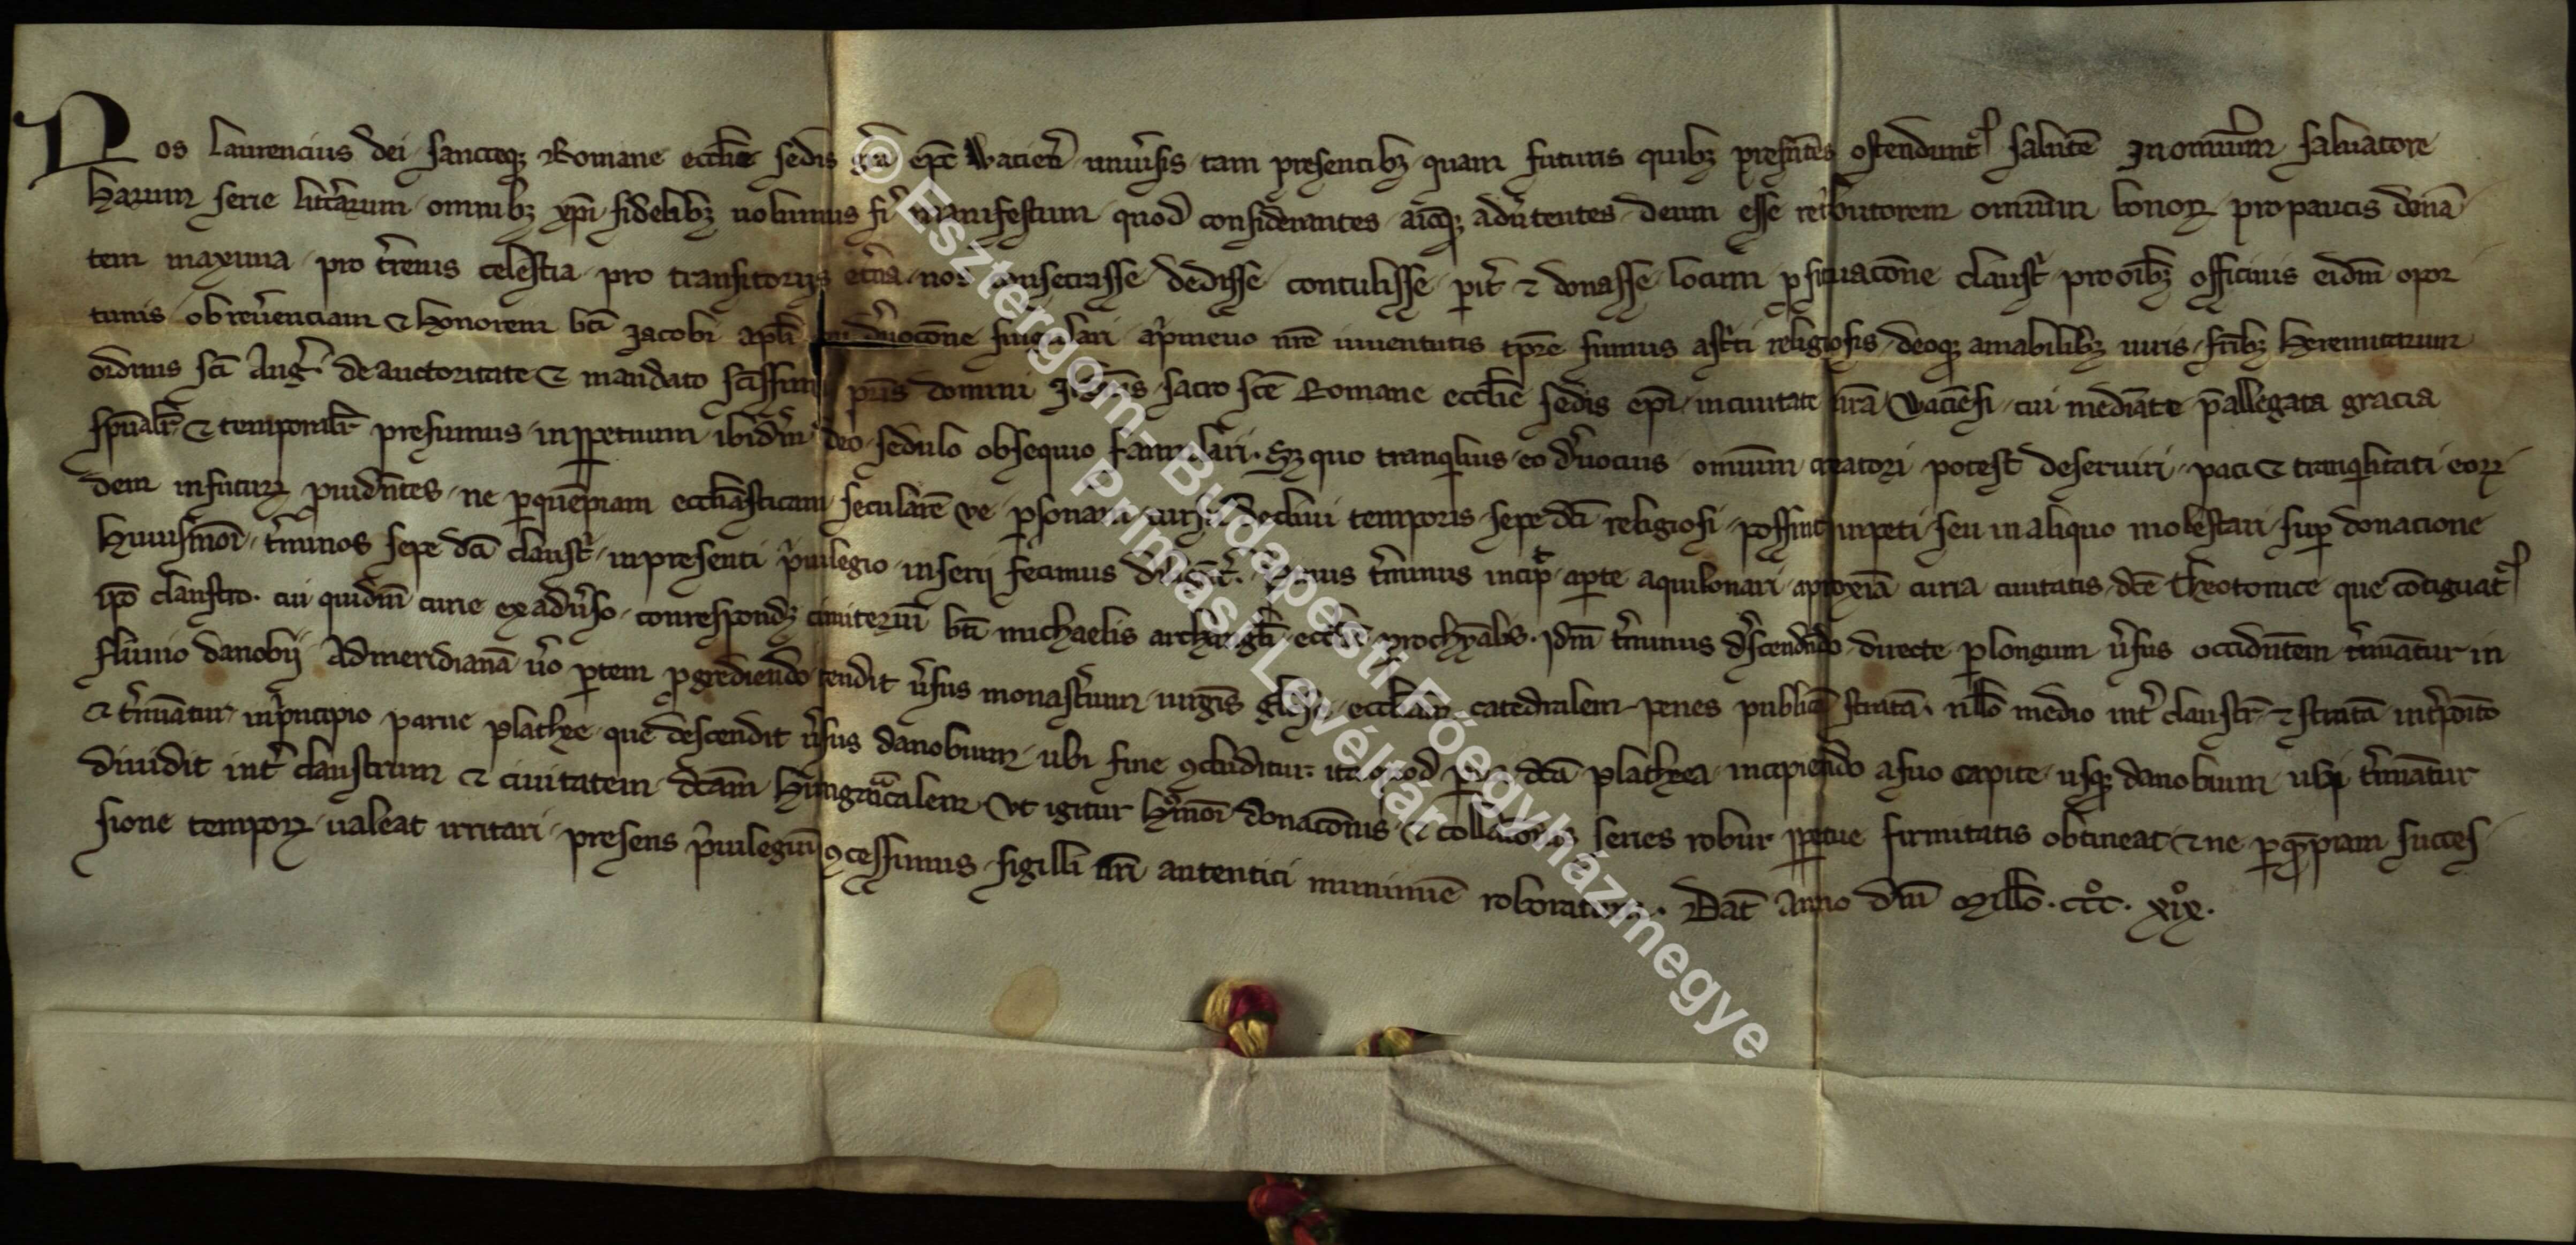 Nos Laurencius dei sancteq; Romane ecclie sedis gra epc Wacien uniusis tam presencib; quam futuris quib; presentes ostendunt salute in omnium saluatore
harum serie litterarum omnib; xpi fidelib; uolumus fi manifestum quod considerantes aicq; aduertentes deum esse retibutorem omnium bonor pro paucis dona
tem maxima pro trenis celestia pro transitoriis etna nos consecrasse dedisse contulisse pit & donasse locum p situacone claust pro oib; officiis eidm opor
tunis ob reuerenciam & honorem bti Jacobi apli deuocone singulari a pmeuo nre iuuentutis tpre sumus astti religiosis deoq; amabilib; uiris frib; heremitarum
ordinis sci Aug de auctoritate & mandato scissimi pris domini sacro sce Romane ecclie sedis epi in ciuitate nra Waciensi cui mediante pallegata gracia
spualr & temporalr presumus inppetuum ibidm deo sedulo obsequio famulari. S; quo tranqlius eo deuocius omnium creatori potest deseruiri paci & tranqlitati eor
dem in futur puidentes ne p quempiam eccliasticam secularem ue psonam cursu decliui temporis sepe dci religiosi possint inpeti seu in aliquo molestari sup donacione
huiusmoi tminos sepe dci claust in presenti priuilegio inserii fecimus tminus incip a pte aquilonari a pxia curia ciuitatis dce theotonice que cotiguat
ipo claustro. cui quidm curie ex aduso correspond; cimiteriu bti michaelis archangli ecclie prochyalis. Idm tminus dscendendo directe p longum usus occidentem tminatur in
fluuio danobij Ad meridiana uo ptem pgrediendo tendit usus monastium uirgis glose eccliam catedralem penes publica strata. nllo medio int claustr & strata intposito
& tminatur in principio parue plathee que descendit usus danobium ubi fine 9cluditur. ita quod dcta plathea incipiendo a suo capite usq; danobium ubi tminatur
diuidit int claustrum & ciuitatem dcam hungaricalem. Ut igitur hmoi donaconis & collaconis series robur ppetue firmitatis obtineat & ne p qmpiam succes
sione tempor ualeat irritari presens priuilegiu 9cessimus sigilli nri autentici munimie roboratum. Dat Anno dni Millo. ccc. xix.
© Esztergom-Budapesti Főegyházmegye
Prímási Levéltár